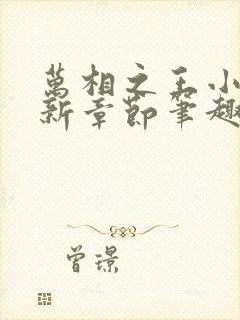 萬相之王小
新章節筆趣
曾璟